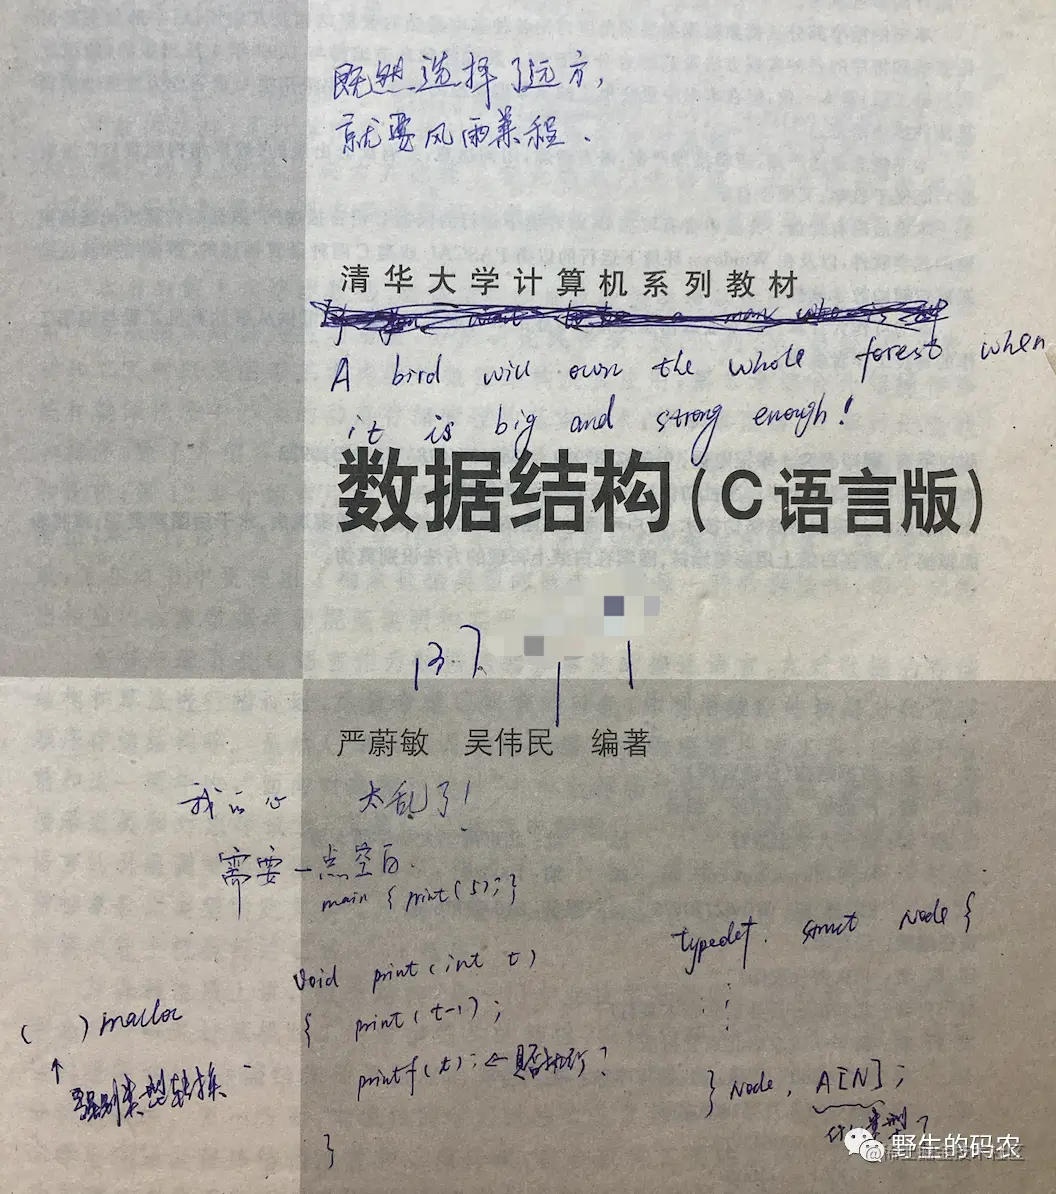 既然选择了远方,
就要风雨兼程.
清华大学计算机系列教材
A bird will own the whole forest when
it is big and strong enough!
数据结构(C语言版)
137
严蔚敏 吴伟民 编著
我的心 太乱了!
需要一点空白.
main { print(5); }
void print(int t)
{ print(t-1);
printf(t); ← 是否执行?
}
( ) malloc
↑
强制类型转换
typedef struct Node {
} Node, A[N];
什么类型?
野生的码农
@稀土掘金技术社区